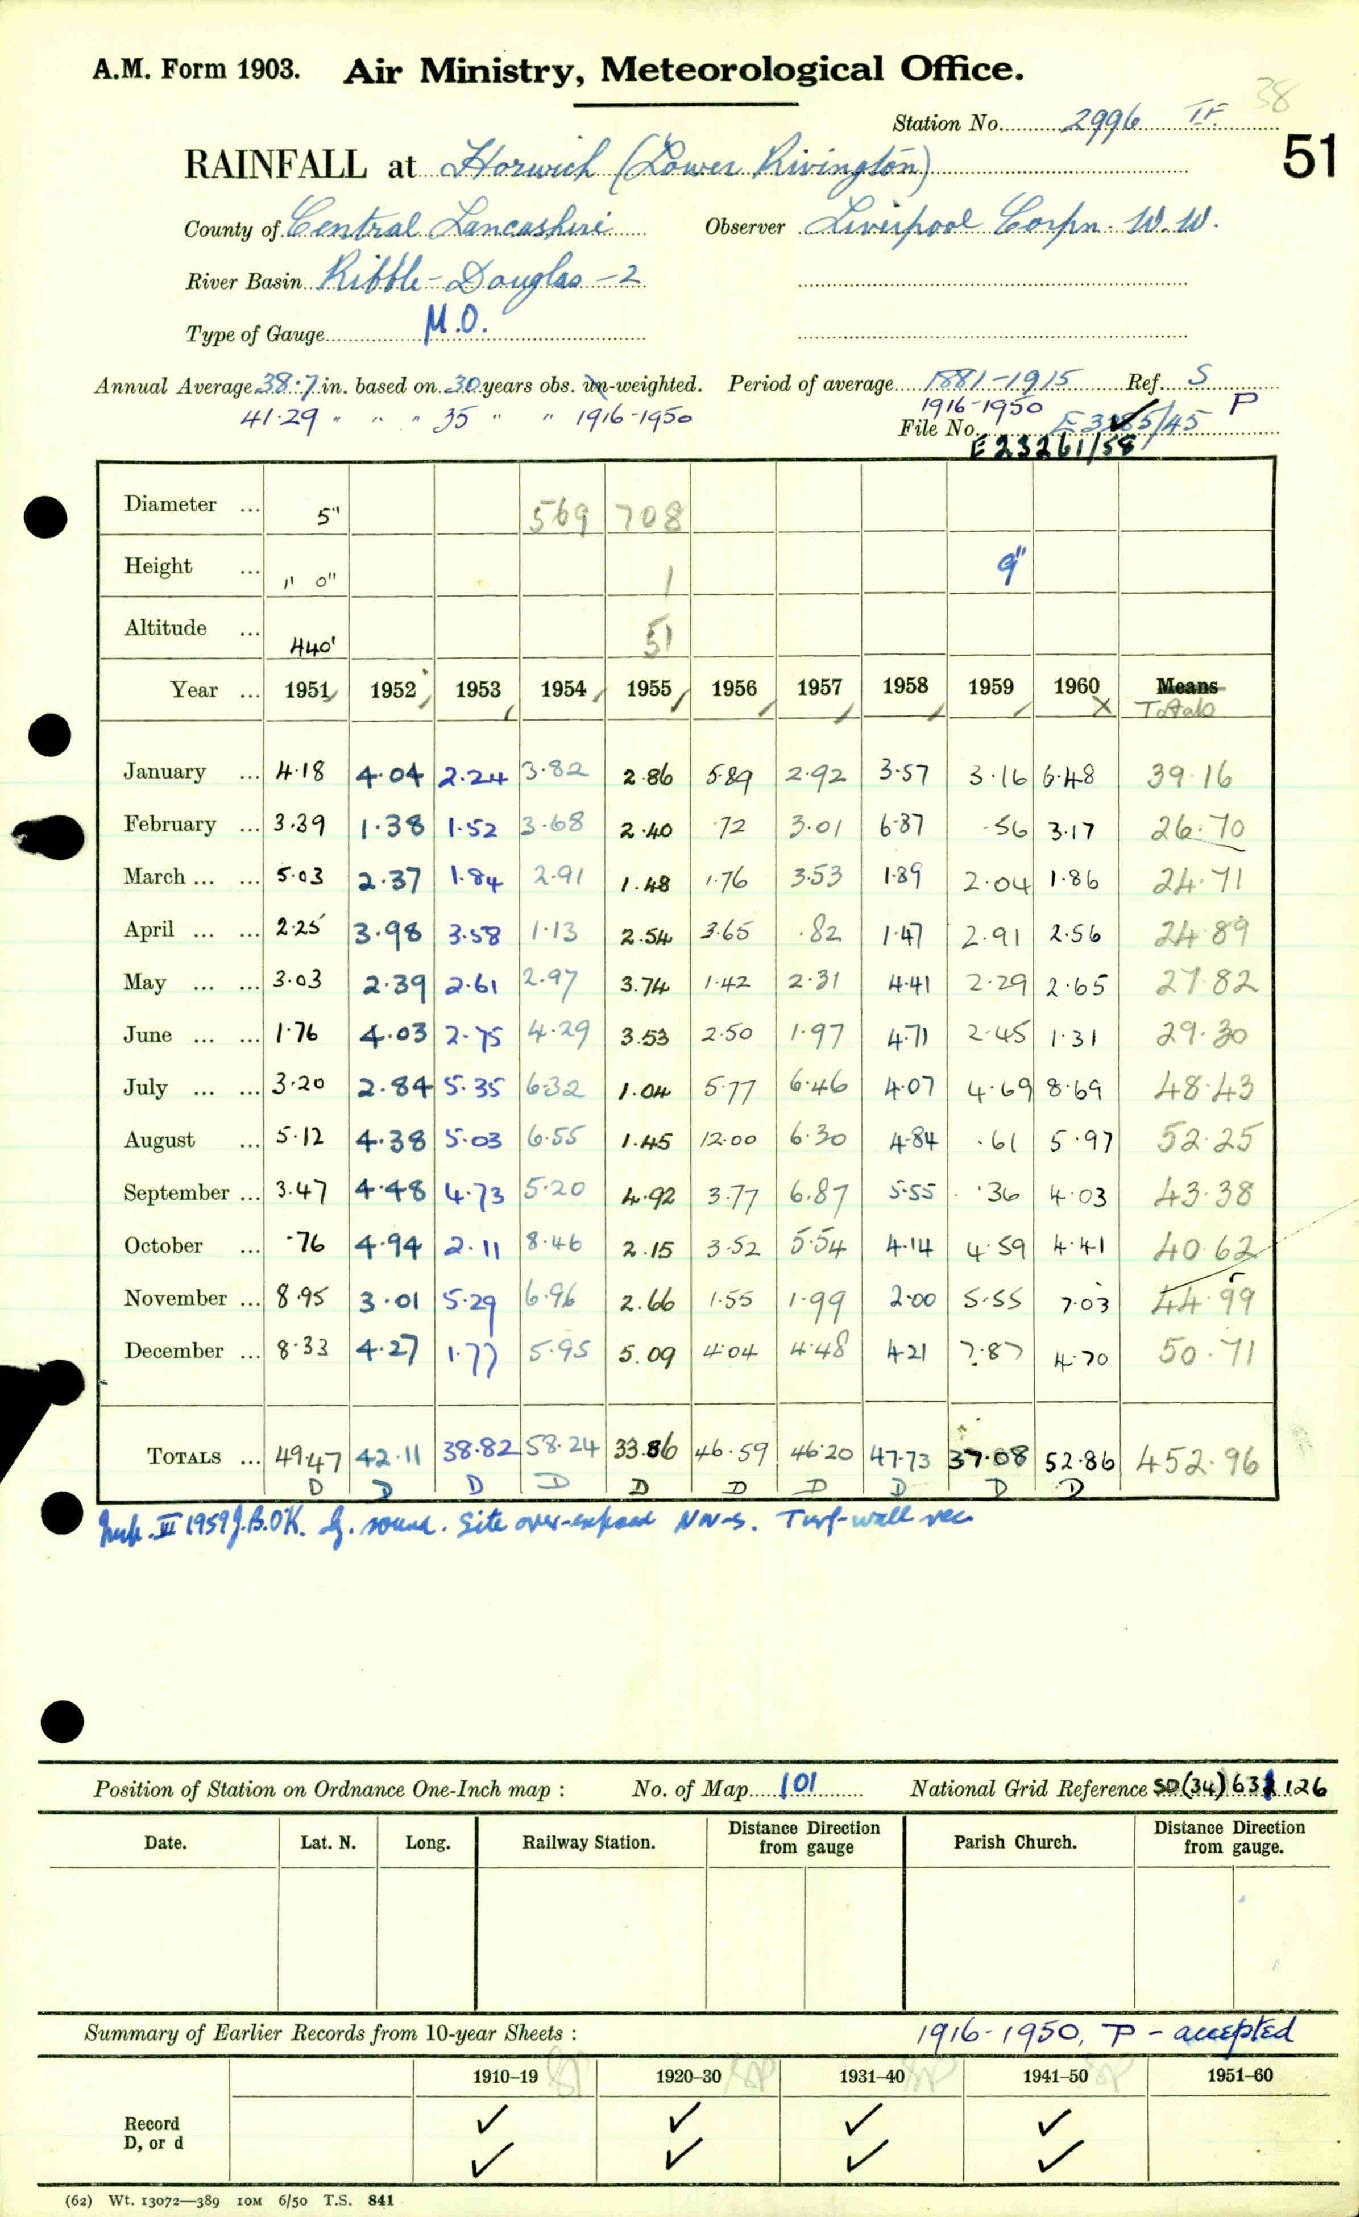 A.M. Form 1903. Air Ministry, Meteorological Office.
38
Station No. 2996 I.F.
51
RAINFALL at Horwich (Lower Rivington)
County of Central Lancashire Observer Liverpool Corpn. W.W.
River Basin Ribble-Douglas-2
Type of Gauge M.O.
Annual Average 38.7 in. based on 30 years obs. un-weighted. Period of average 1881-1915 Ref. S
41.29 " " " 35 " " 1916-1950 1916-1950 P
File No. E3285/45
E23261/58
Diameter ... 5" 569 708
Height ... 1' 0" 1 9"
Altitude ... 440' 51
Year ... 1951 1952 1953 1954 1955 1956 1957 1958 1959 1960 Means
Totals
January ... 4.18 4.04 2.24 3.82 2.86 5.89 2.92 3.57 3.16 6.48 39.16
February ... 3.39 1.38 1.52 3.68 2.40 .72 3.01 6.87 .56 3.17 26.70
March ... ... 5.03 2.37 1.84 2.91 1.48 1.76 3.53 1.89 2.04 1.86 24.71
April ... ... 2.25 3.98 3.58 1.13 2.54 3.65 .82 1.47 2.91 2.56 24.89
May ... ... 3.03 2.39 2.61 2.97 3.74 1.42 2.31 4.41 2.29 2.65 27.82
June ... ... 1.76 4.03 2.75 4.29 3.53 2.50 1.97 4.71 2.45 1.31 29.30
July ... ... 3.20 2.84 5.35 6.32 1.04 5.77 6.46 4.07 4.69 8.69 48.43
August ... 5.12 4.38 5.03 6.55 1.45 12.00 6.30 4.84 .61 5.97 52.25
September ... 3.47 4.48 4.73 5.20 4.92 3.77 6.87 5.55 .36 4.03 43.38
October ... .76 4.94 2.11 8.46 2.15 3.52 5.54 4.14 4.59 4.41 40.62
November ... 8.95 3.01 5.29 6.96 2.66 1.55 1.99 2.00 5.55 7.03 44.99
December ... 8.33 4.27 1.77 5.95 5.09 4.04 4.48 4.21 7.87 4.70 50.71
TOTALS ... 49.47 42.11 38.82 58.24 33.86 46.59 46.20 47.73 37.08 52.86 452.96
D D D D D D D D D D
III 1959 J.B.OK. sound. Site over-exposed Turf-wall rec
Position of Station on Ordnance One-Inch map : No. of Map 101 National Grid Reference SD(34) 126
Date. Lat. N. Long. Railway Station. Distance from Direction gauge Parish Church. Distance from Direction gauge.
Summary of Earlier Records from 10-year Sheets : 1916-1950, P - accepted
1910–19 1920–30 1931–40 1941–50 1951–60
Record ✓ ✓ ✓ ✓
D, or d ✓ ✓ ✓ ✓
(62) Wt. 13072—389 10M 6/50 T.S. 841